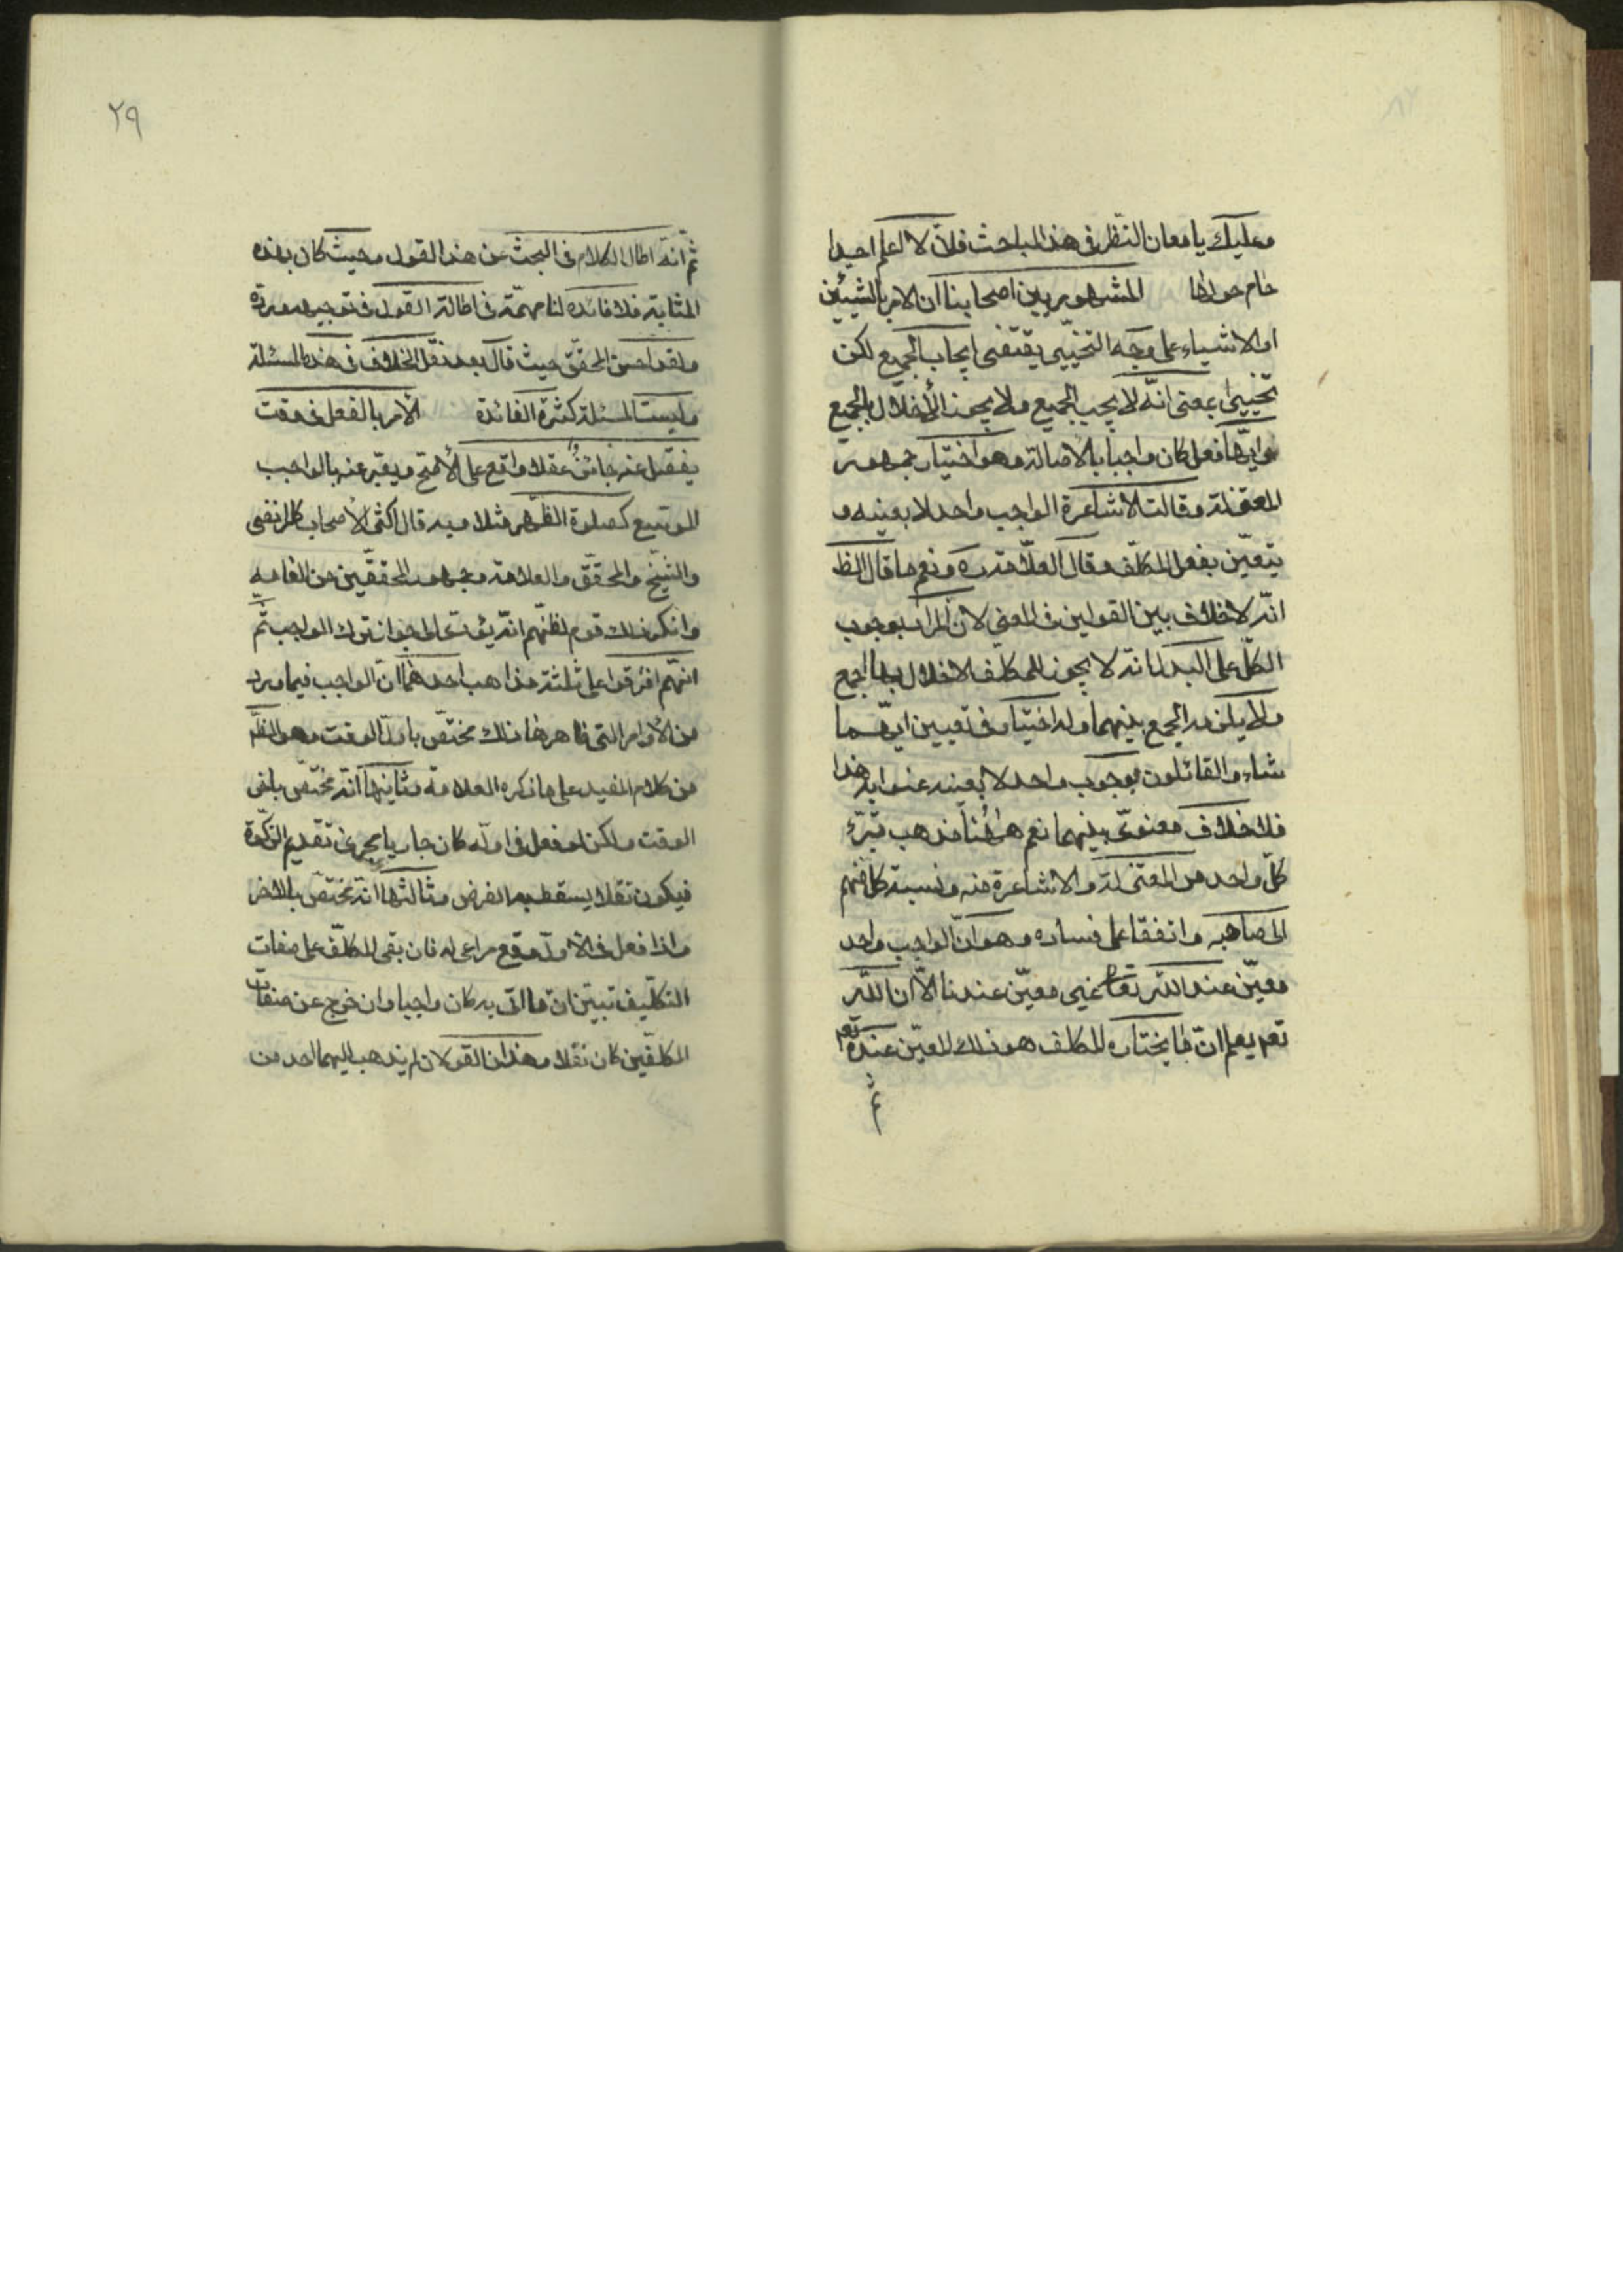 وعليك بامعان النظر في هذا المباحث فانى لا اعلم احدا
حام حولها المشهور بين اصحابنا ان الامر بالشيئين
او الاشياء على وجه التخيير يقتضى ايجاب الجميع لكن
تخييرا بمعنى انه لا يجب الجميع ولا يجوز الأخلال بالجميع
وايها فعل كان واجبا بالاصالة وهو اختيار جمهور
المعتزلة وقالت الاشاعرة الواجب واحد لا بعينه و
يتعين بفعل المكلف وقال العلامة ره ونعم ما قال الظ
انه لا خلاف بين القولين في المعنى لان المراد بوجوب
الكل على البدل انه لا يجوز للمكلف الاخلال بها اجمع
ولا يلزمه الجمع بينهما وله اختيار في تعيين ايهما
شاء والقائلون بوجوب واحد لا بعينه عنوا به هذا
فلا خلاف معنوى بينهما نعم ههنا مذهب تبرء
كل واحد من المعتزلة والاشاعرة منه ونسبة كل منهم
الى صاحبه واتفقا على فساده وهو ان الواجب واحد
معين عند الله تعالى غير معين عندنا الا ان الله
تعم يعلم ان ما يختاره المكلف هو ذلك المعين عنده تعم
ثم
٢٩
ثم انه اطال الكلام في البحث عن هذا القول وحيث كان بهذه
المثابة فلا فائدة لنا مهمة في اطالة القول في توجيهه ورده
ولقد احسن المحقق حيث قال بعد نقل الخلاف في هذه المسئلة
وليست المسئلة كثيرة الفائدة الامر بالفعل في وقت
يفضل عنه جائز عقلا واقع على الأصح ويعبر عنه بالواجب
الموسع كصلوة الظهر مثلا وبه قال اكثر الأصحاب كالمرتضى
والشيخ والمحقق والعلامة وجمهور المحققين من العامة
وانكر ذلك قوم لظنهم انه يؤدى الى جواز ترك الواجب ثم
انهم افترقوا على ثلثة مذاهب احدها ان الواجب فيما ورد
من الأوامر التى ظاهرها ذلك مختص باول الوقت وهو الظ
من كلام المفيد على ما ذكره العلامة وثانيها انه مختص باخر
الوقت ولكن لو فعل في اوله كان جاريا مجرى تقديم الزكوة
فيكون نفلا يسقط به الفرض وثالثها انه مختص بالاخر
واذا فعل في الأول وقع مراعى له فان بقى المكلف على صفات
التكليف تبين ان ما اتى به كان واجبا وان خرج عن صفات
المكلفين كان نفلا وهذان القولان لم يذهب اليهما احد من